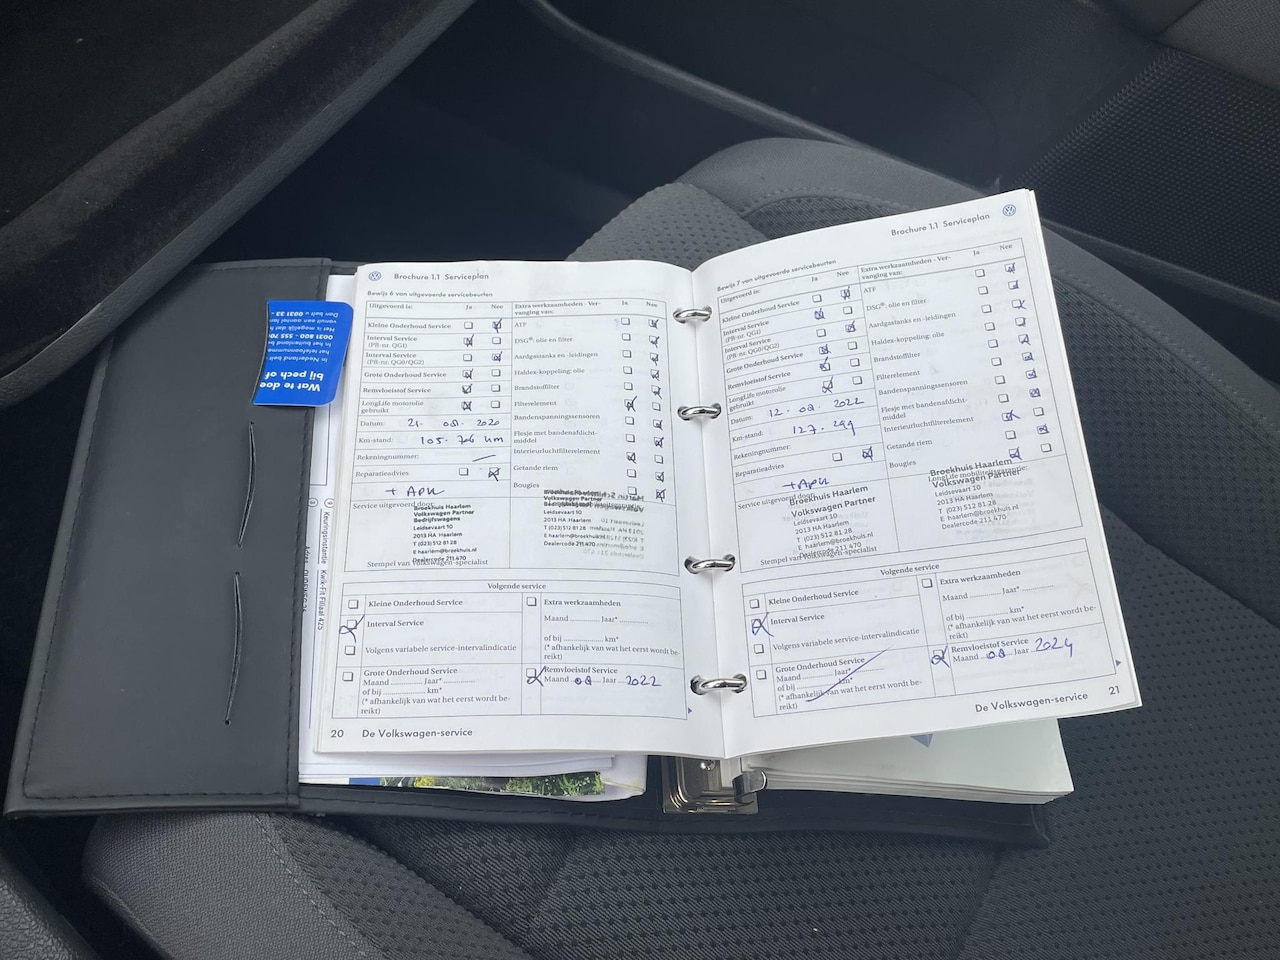 Brochure 1.1 Serviceplan
Bewijs 6 van uitgevoerde servicebeurten
Uitgevoerd is: Ja Nee
Kleine Onderhoud Service
Interval Service
(PR-nr. QG1)
Interval Service
(PR-nr. QG0/QG2)
Grote Onderhoud Service
Remvloeistof Service
LongLife motorolie
gebruikt
Datum: 21. 2020
Km-stand: 105. 706 km
Rekeningnummer: —
Reparatieadvies
+ APK
Extra werkzaamheden - Ver-
vanging van: Ja Nee
ATF
DSG®: olie en filter
Aardgastanks en -leidingen
Haldex-koppeling: olie
Brandstoffilter
Filterelement
Bandenspanningssensoren
Flesje met bandenafdicht-
middel
Interieurluchtfilterelement
Getande riem
Bougies
Service uitgevoerd door:
Broekhuis Haarlem
Volkswagen Partner
Bedrijfswagens
Leidsevaart 10
2013 HA Haarlem
T (023) 512 81 28
E haarlem@broekhuis.nl
Dealercode 211 470
Stempel van Volkswagen-specialist
Volkswagen Partner
Bedrijfswagens
Leidsevaart 10
2013 HA Haarlem
T (023) 512 81 28
E haarlem@broekhuis.nl
Dealercode 211.470
Volgende service
Kleine Onderhoud Service
Interval Service
Volgens variabele service-intervalindicatie
Grote Onderhoud Service
Maand ............ Jaar* ............
of bij ............ km*
(* afhankelijk van wat het eerst wordt be-
reikt)
Extra werkzaamheden
Maand ............ Jaar* ............
of bij ............ km*
(* afhankelijk van wat het eerst wordt be-
reikt)
Remvloeistof Service
Maand 08 Jaar 2022
20 De Volkswagen-service
Brochure 1.1 Serviceplan
Bewijs 7 van uitgevoerde servicebeurten
Uitgevoerd is: Ja Nee
Kleine Onderhoud Service
Interval Service
(PR-nr. QG1)
Interval Service
(PR-nr. QG0/QG2)
Grote Onderhoud Service
Remvloeistof Service
LongLife motorolie
gebruikt
Datum: 12. 08. 2022
Km-stand: 127. 299
Rekeningnummer:
Reparatieadvies
+ APK
Extra werkzaamheden - Ver-
vanging van: Ja Nee
ATF
DSG®: olie en filter
Aardgastanks en -leidingen
Haldex-koppeling: olie
Brandstoffilter
Filterelement
Bandenspanningssensoren
Flesje met bandenafdicht-
middel
Interieurluchtfilterelement
Getande riem
Bougies
Service uitgevoerd door:
Broekhuis Haarlem
Volkswagen Partner
Leidsevaart 10
2013 HA Haarlem
T (023) 512 81 28
E haarlem@broekhuis.nl
Dealercode 211 470
Stempel van Volkswagen-specialist
LongLife mobiliteitsgarantie:
Broekhuis Haarlem
Volkswagen Partner
Leidsevaart 10
2013 HA Haarlem
T (023) 512 81 28
E haarlem@broekhuis.nl
Dealercode 211 470
Volgende service
Kleine Onderhoud Service
Interval Service
Volgens variabele service-intervalindicatie
Grote Onderhoud Service
Maand ............ Jaar* ............
of bij ............ km*
(* afhankelijk van wat het eerst wordt be-
reikt)
Extra werkzaamheden
Maand ............ Jaar* ............
of bij ............ km*
(* afhankelijk van wat het eerst wordt be-
reikt)
Remvloeistof Service
Maand 08 Jaar 2024
De Volkswagen-service 21
Wat te doe
bij pech of
Keuringsinstantie Kwik-Fit Filiaal 425